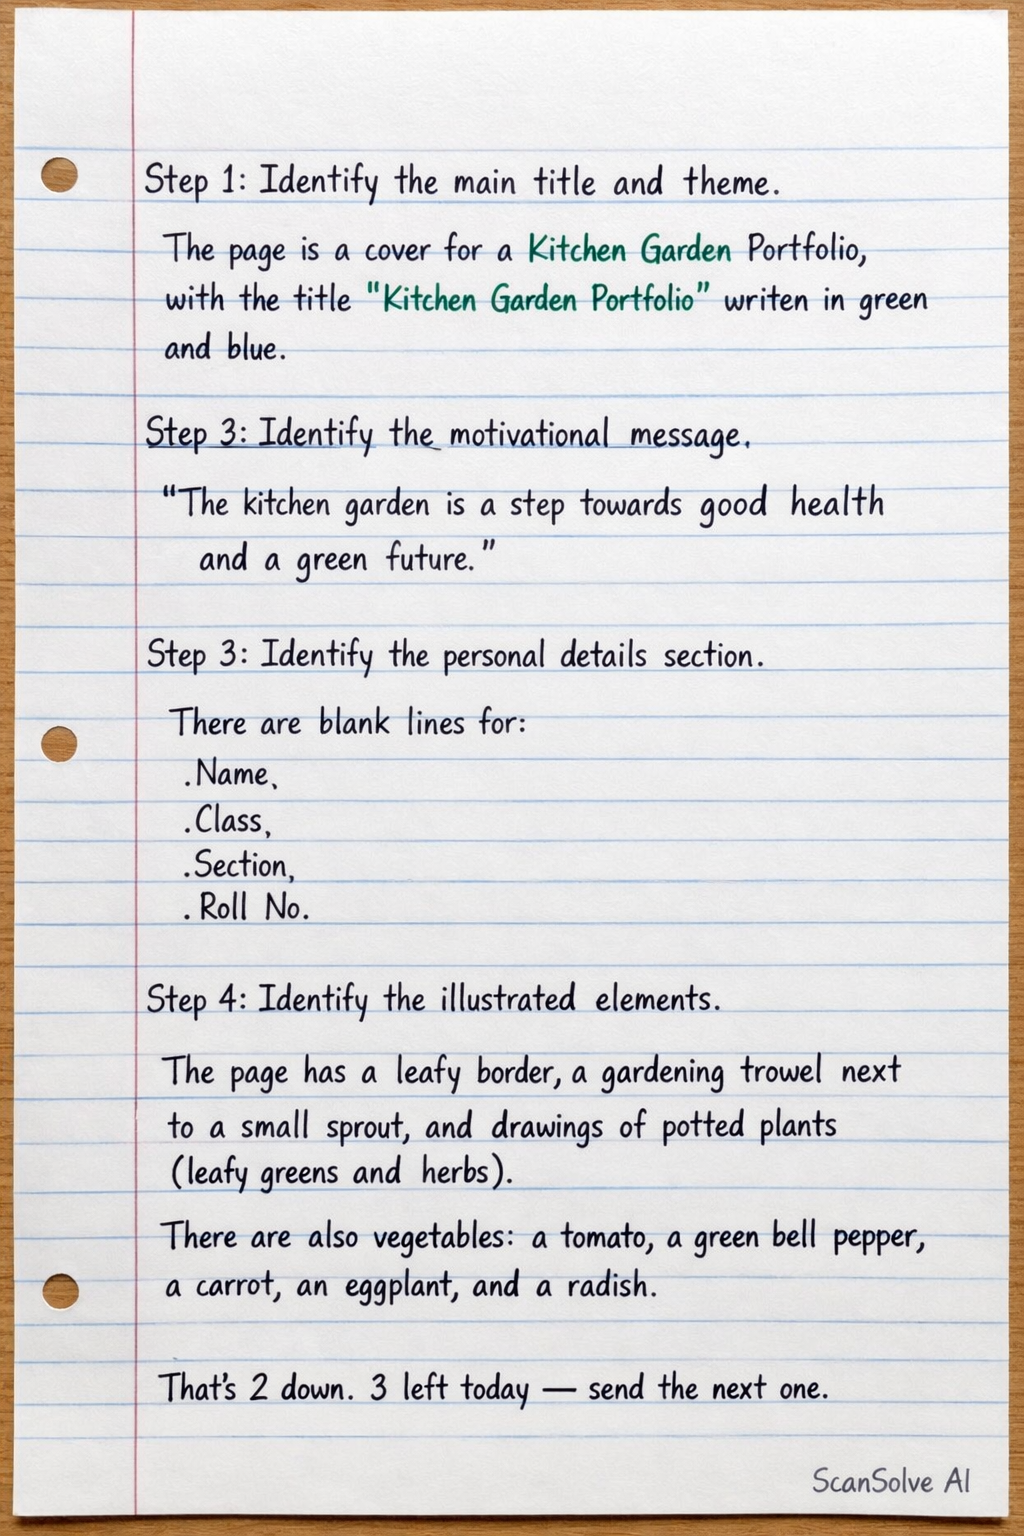 Step 1: Identify the main title and theme.
The page is a cover for a Kitchen Garden Portfolio,
with the title "Kitchen Garden Portfolio" writen in green
and blue.
Step 3: Identify the motivational message.
"The kitchen garden is a step towards good health
and a green future."
Step 3: Identify the personal details section.
There are blank lines for:
.Name,
.Class,
.Section,
. Roll No.
Step 4: Identify the illustrated elements.
The page has a leafy border, a gardening trowel next
to a small sprout, and drawings of potted plants
(leafy greens and herbs).
There are also vegetables: a tomato, a green bell pepper,
a carrot, an eggplant, and a radish.
That's 2 down. 3 left today — send the next one.
ScanSolve AI